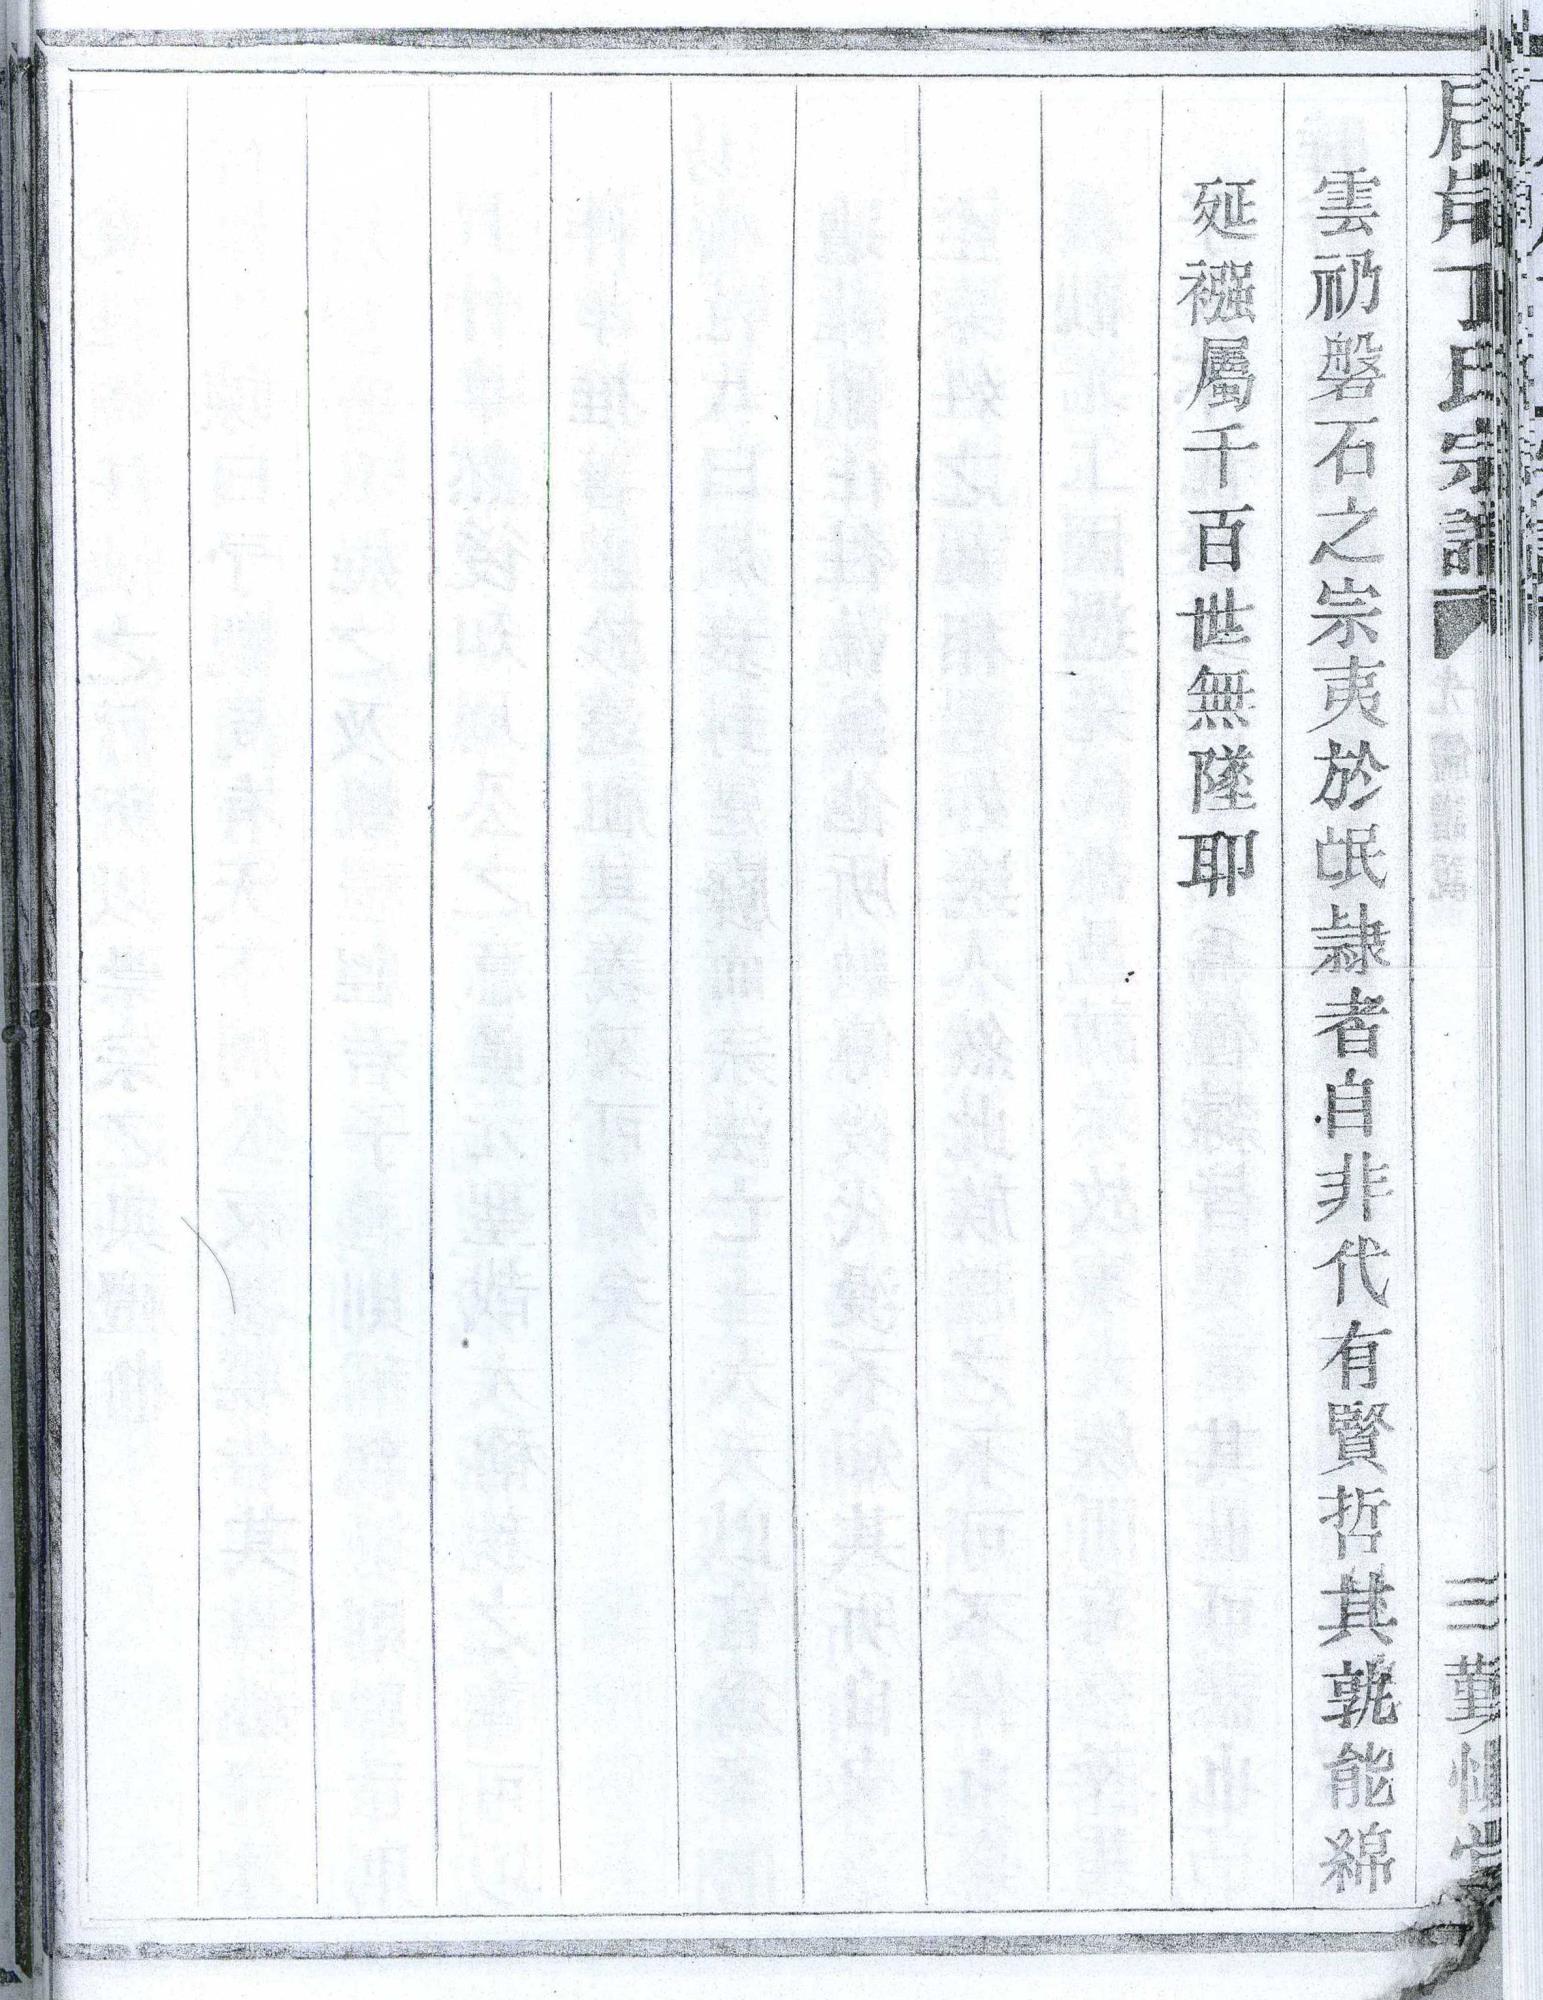 丁氏宗譜
三 勤慎堂
雲礽磐石之宗夷於氓隷者自非代有賢哲其孰能綿
延襁屬千百世無墜耶